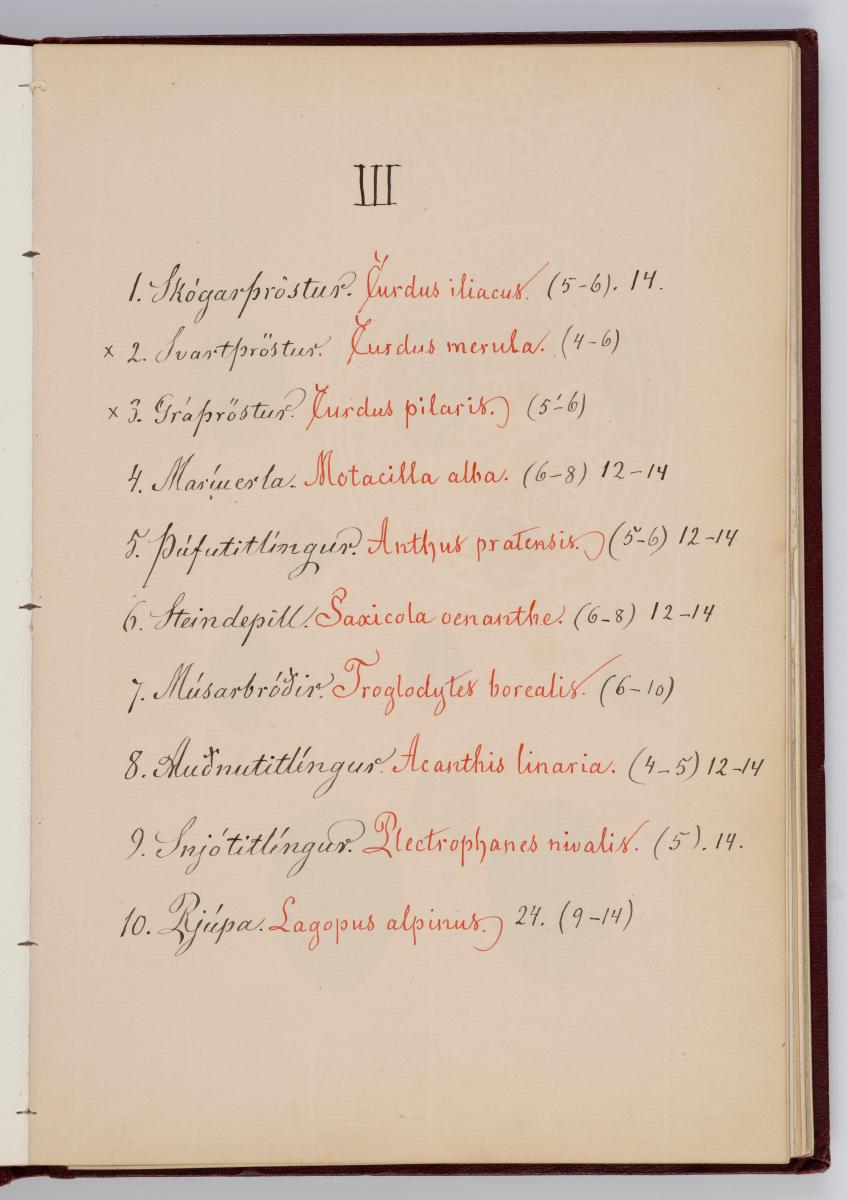 III
1. Skógarþröstur. Turdus iliacus. (5-6). 14.
x 2. Svartþröstur. Turdus merula. (4-6)
x 3. Gráþröstur. Turdus pilaris. (5-6)
4. Maríuerla. Motacilla alba. (6-8) 12-14
5. Þúfutitlíngur. Anthus pratensis. (5-6) 12-14
6. Steindepill. Saxicola oenanthe. (6-8) 12-14
7. Músarbróðir. Troglodytes borealis. (6-10)
8. Auðnutitlíngur. Acanthis linaria. (4-5) 12-14
9. Snjótitlíngur. Plectrophanes nivalis. (5). 14.
10. Rjúpa. Lagopus alpinus. 24. (9-14)